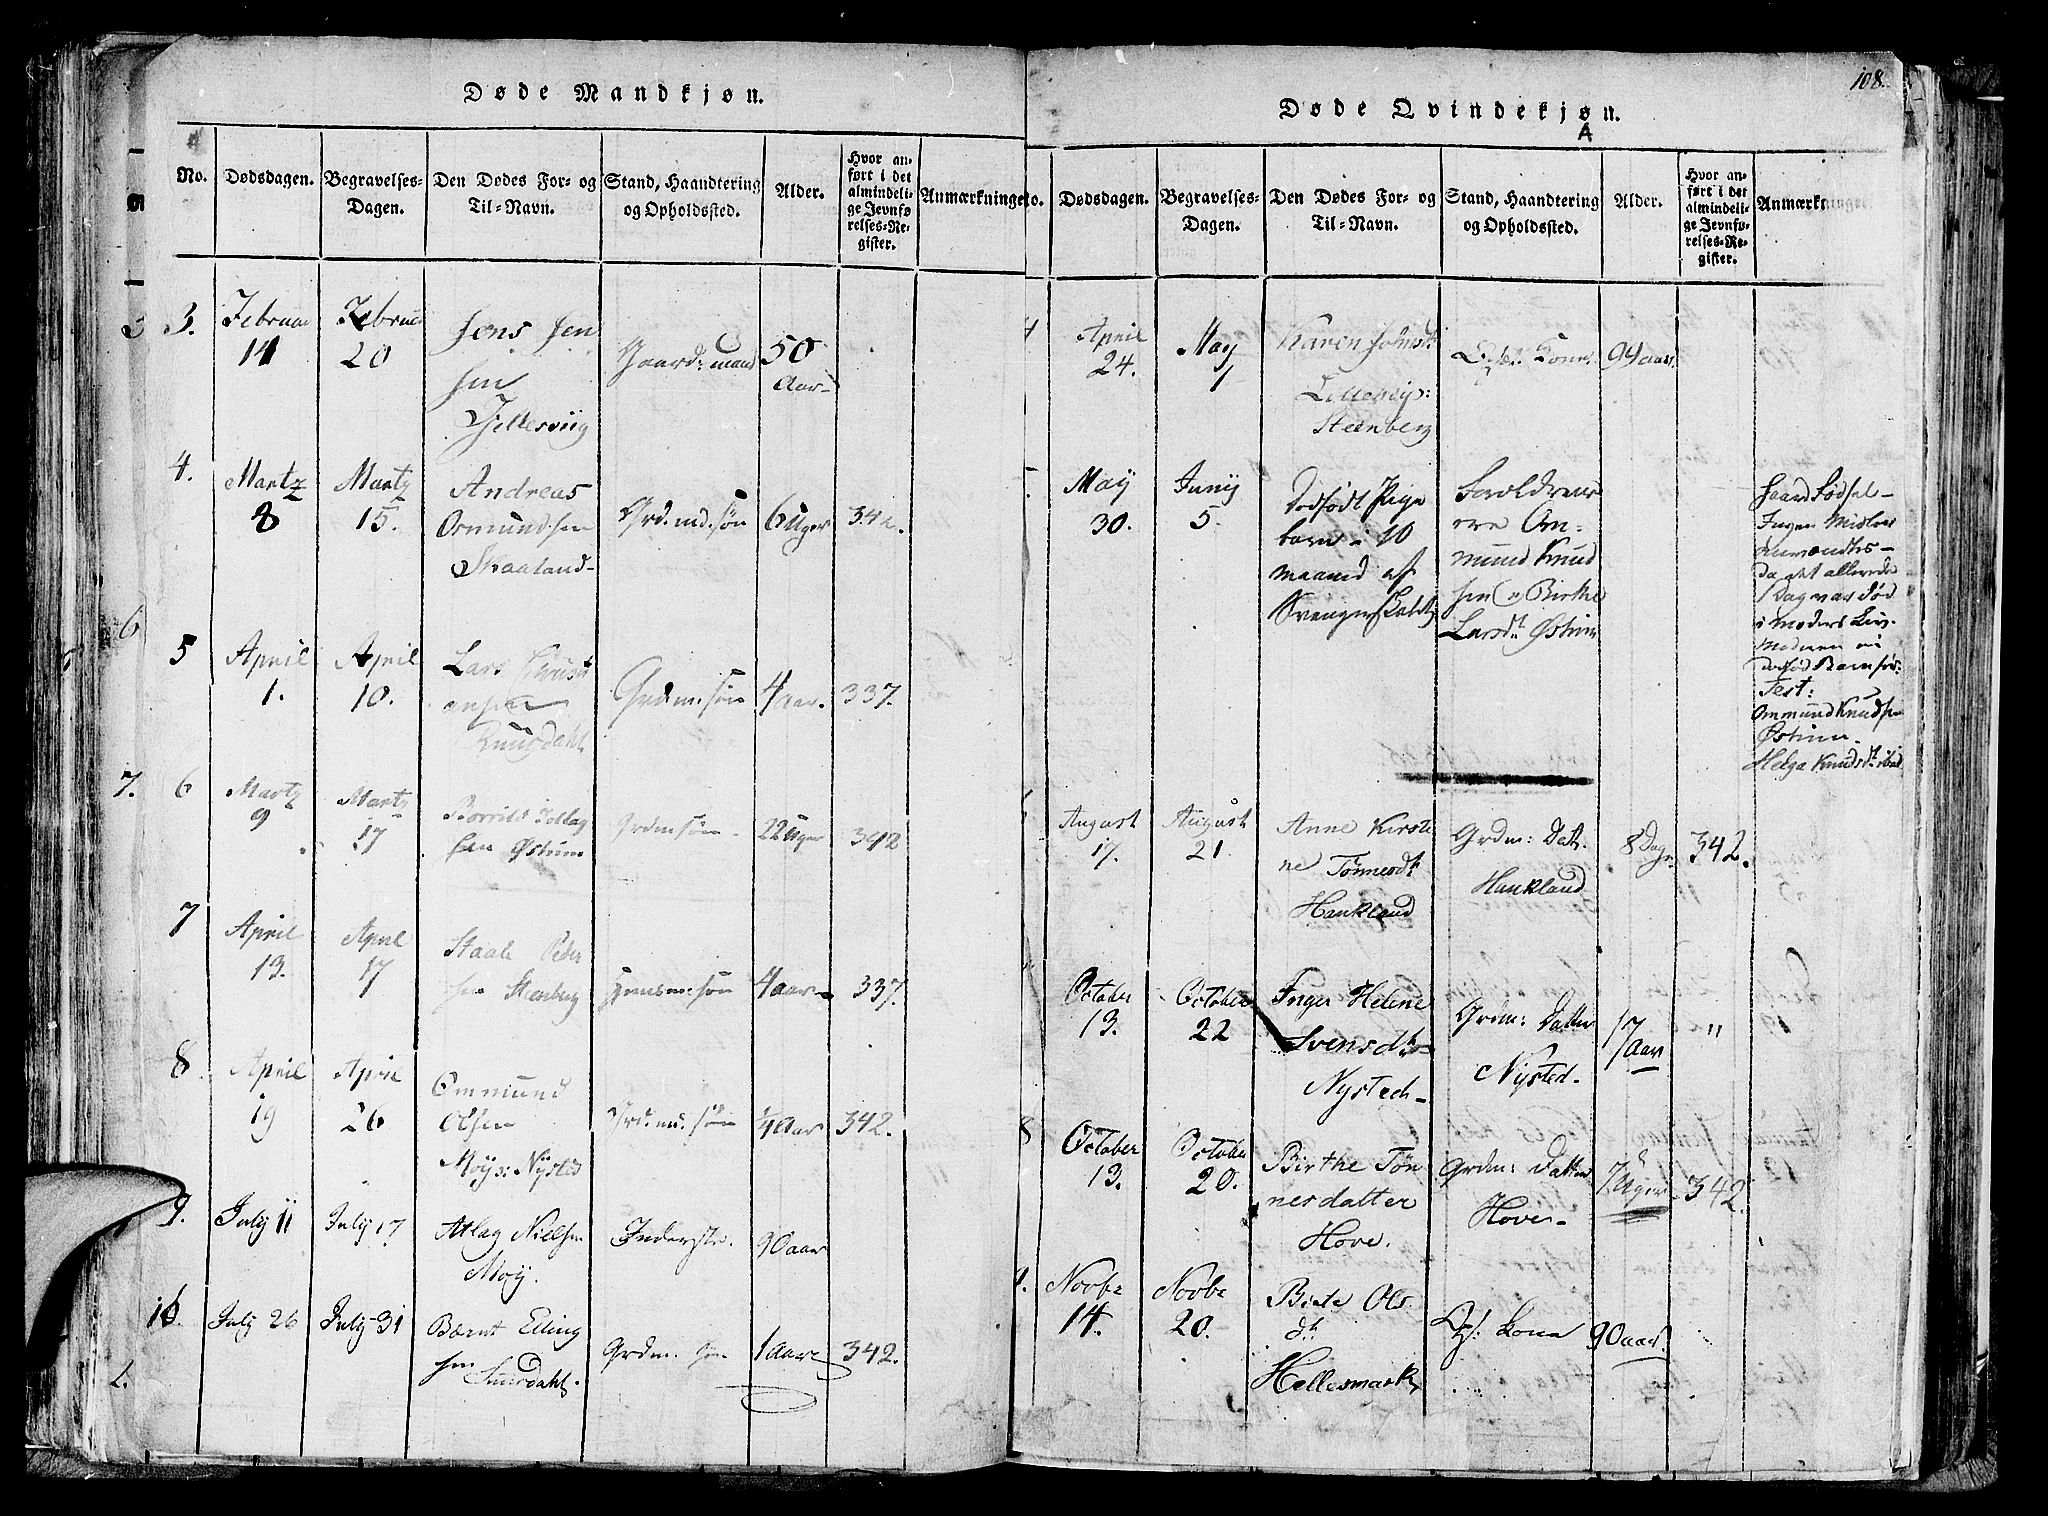 108.
Døde Mandkjøn.
No. Dødsdagen. Begravelses-Dagen. Den Dødes For- og Til-Navn. Stand, Haandtering og Opholdssted. Alder. Hvor anført i det almindelige Jevnførelses-Register. Anmærkninger
3. Februar 14 Februar 20 Jens Jen
sen Gaard: mand 50 Aar
4. Martz 8 Martz 15. Andreas
Ormundsen
Skaaland Grd.md.søn 6 Uger 342.
5 April 1. April 10. Lars Christ
ensen
Ruusdahl Grdm.søn 4 Aar. 337.
6 Martz 9 Martz 17
sen Østum Grdmsøn 22 Uger 342
7 April 13. April 17 Staale Peder
sen Steenberg 4 aar 337.
8 April 19 April 26 Ommund
Olsen
Moys: Nysted Grd.m.søn 1/4 Aar 342.
9. July 11 July 17 Atlag Nielsen
Moy. Inderste. 90 aar
10. July 26 July 31 Bærnt Elling
sen Grdm. søn 1 Aar 342.
Døde Qvindekjøn.
No. Dødsdagen. Begravelses-Dagen. Den Dødes For- og Til-Navn. Stand, Haandtering og Opholdssted. Alder. Hvor anført i det almindelige Jevnførelses-Register. Anmærkninger
April 24. May 1 Karen
Steenberg Kone 94 aar.
May 30. Junij 5. Dødfødt Pige
barn - 10
maaned af
Svangerskabet Foreldrene
ere Om-
mund Knud
sen & Birthe
Larsdt Østum haard Fødsel -
Ingen
i moders Liv.
Test:
Ommund Knudsen
Østum
Helga Knudsdt ibid
August 17. August 21. Anne Kirsti
ne Tønnesdt
Haukland Grdm: Dat.
Haukland 8 Dage 342.
October 13. October 22 Inger Helene
Svensdt
Nysted Grdm: Datter
Nysted. 17 Aar "
8 October 13. October 20. Birthe Tøn
nesdatter
Hove. Grdm: Datter
Hove 7 Uger 342.
9. Novbr 14. Novbr 20. Birte Ols
dt
Hellesmark kone 90 aar.